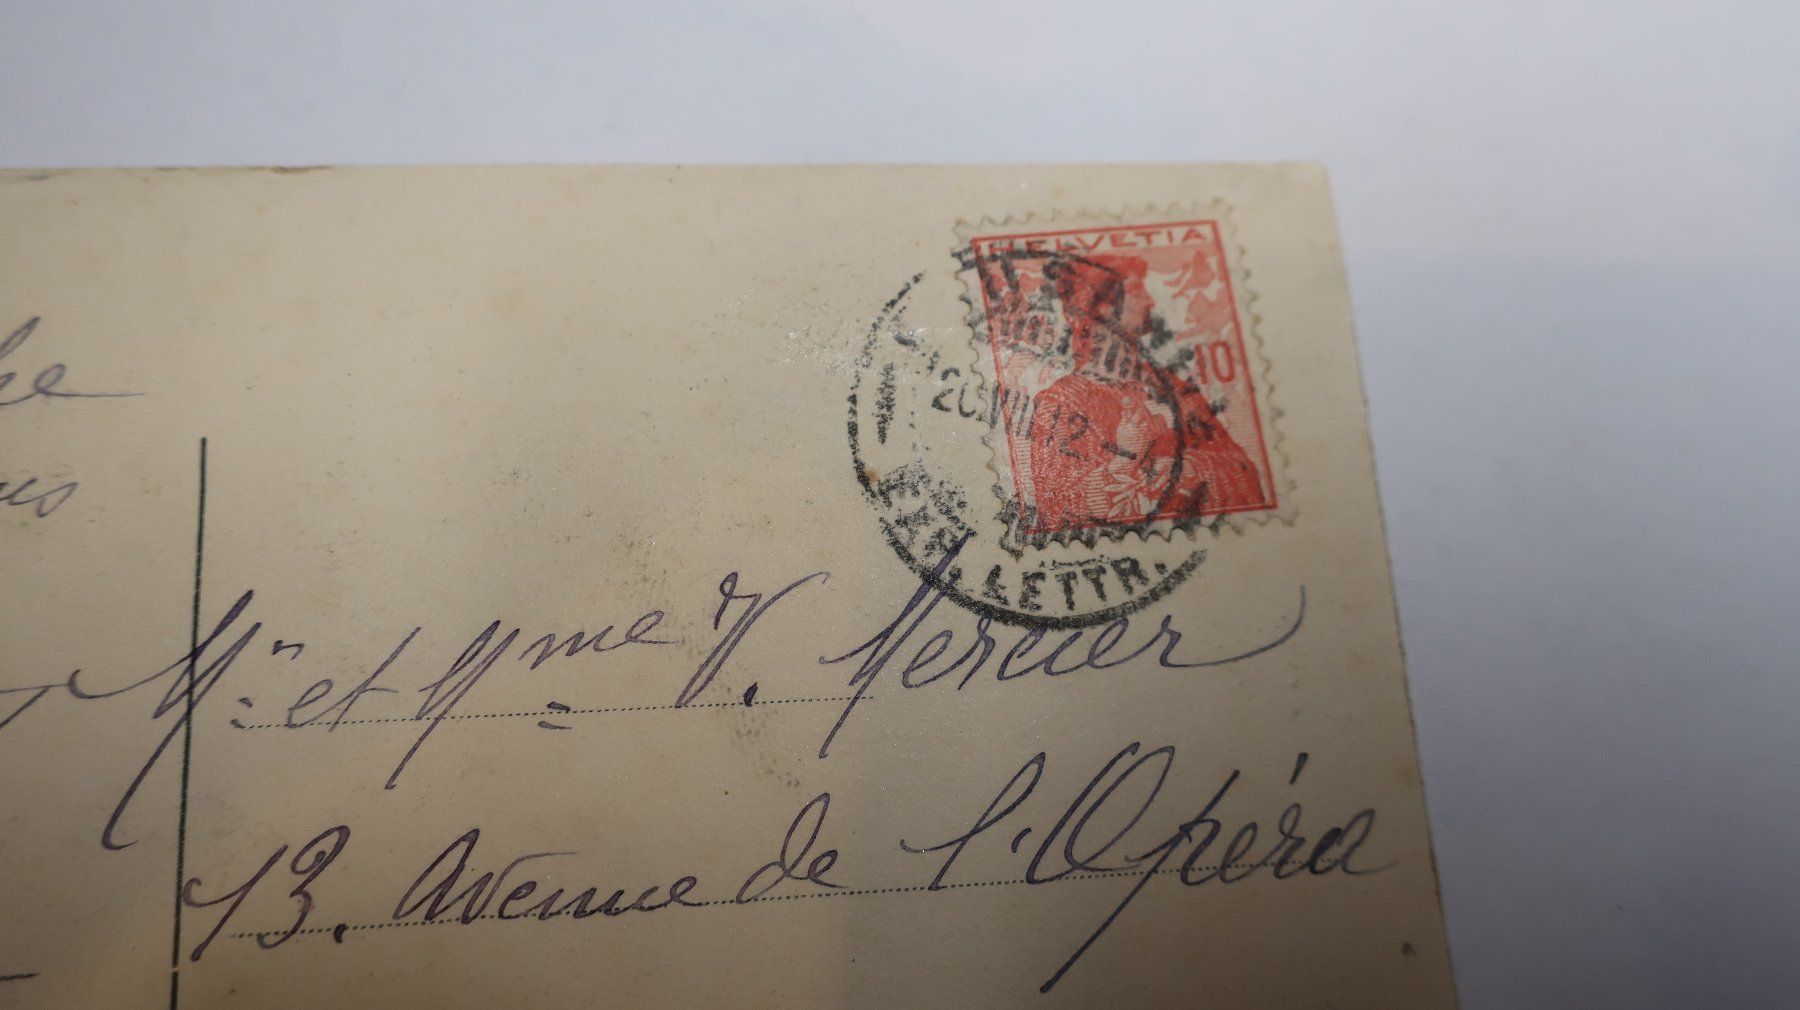 HELVETIA
10
LAUSANNE
VIII.12-4
EXP. LETTR.
Mr. et Mme V. Mercier
13. Avenue de l'Opéra